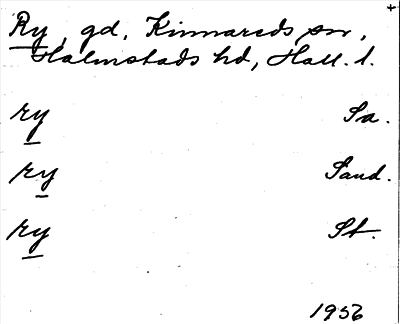 +
Ry, gd, Kinnareds sn,
Halmstads hd, Hall. l.
ry Sa.
ry Sand.
ry St.
1956